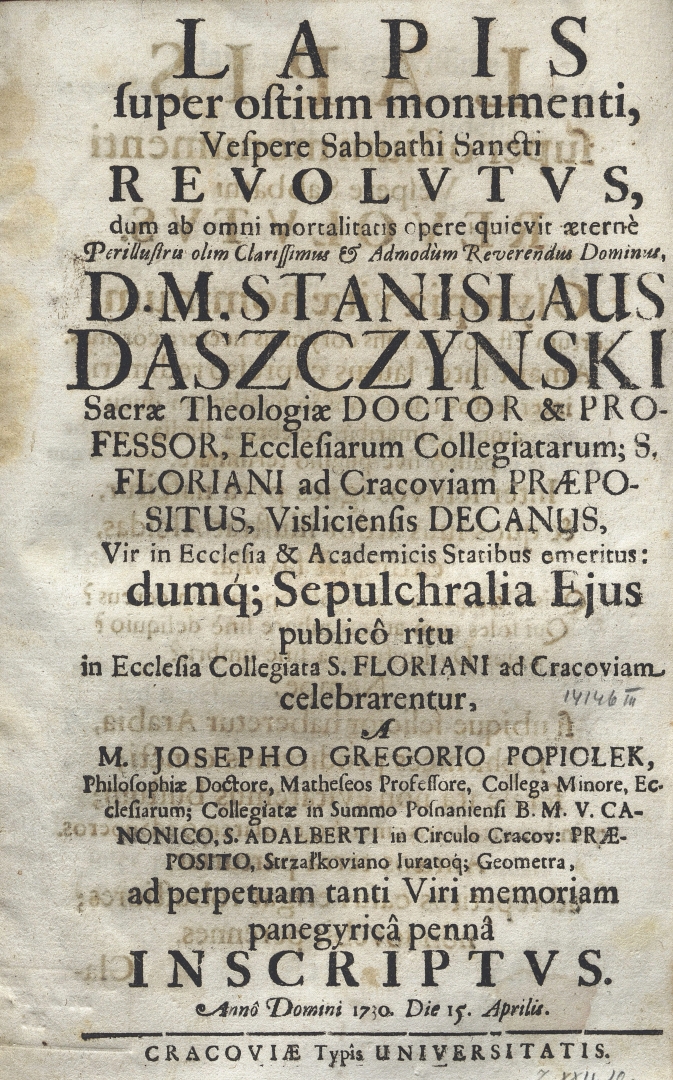 LAPIS
ſuper oſtium monumenti,
Veſpere Sabbathi Sancti
REVOLVTVS,
dum ab omni mortalitatis opere quievit æternè
Perilluſtris olim Clariſſimus & Admodùm Reverendus Dominus,
D.M. STANISLAUS
DASZCZYNSKI
Sacræ Theologiæ DOCTOR & PRO-
FESSOR, Eccleſiarum Collegiatarum; S.
FLORIANI ad Cracoviam PRÆPO-
SITUS, Vislicienſis DECANUS,
Vir in Eccleſia & Academicis Statibus emeritus:
dumq́; Sepulchralia Ejus
publicô ritu
in Eccleſia Collegiata S. FLORIANI ad Cracoviam
celebrarentur,
14146 III
A
M. JOSEPHO GREGORIO POPIOŁEK,
Philoſophiæ Doctore, Matheſeos Profeſſore, Collega Minore, Ec-
cleſiarum; Collegiatæ in Summo Poſnanienſi B. M. V. CA-
NONICO, S. ADALBERTI in Circulo Cracov: PRÆ-
POSITO, Strzałkoviano Iuratoq́; Geometra,
ad perpetuam tanti Viri memoriam
panegyricâ pennâ
INSCRIPTVS.
Annô Domini 1730. Die 15. Aprilis.
CRACOVIÆ Typîs UNIVERSITATIS.